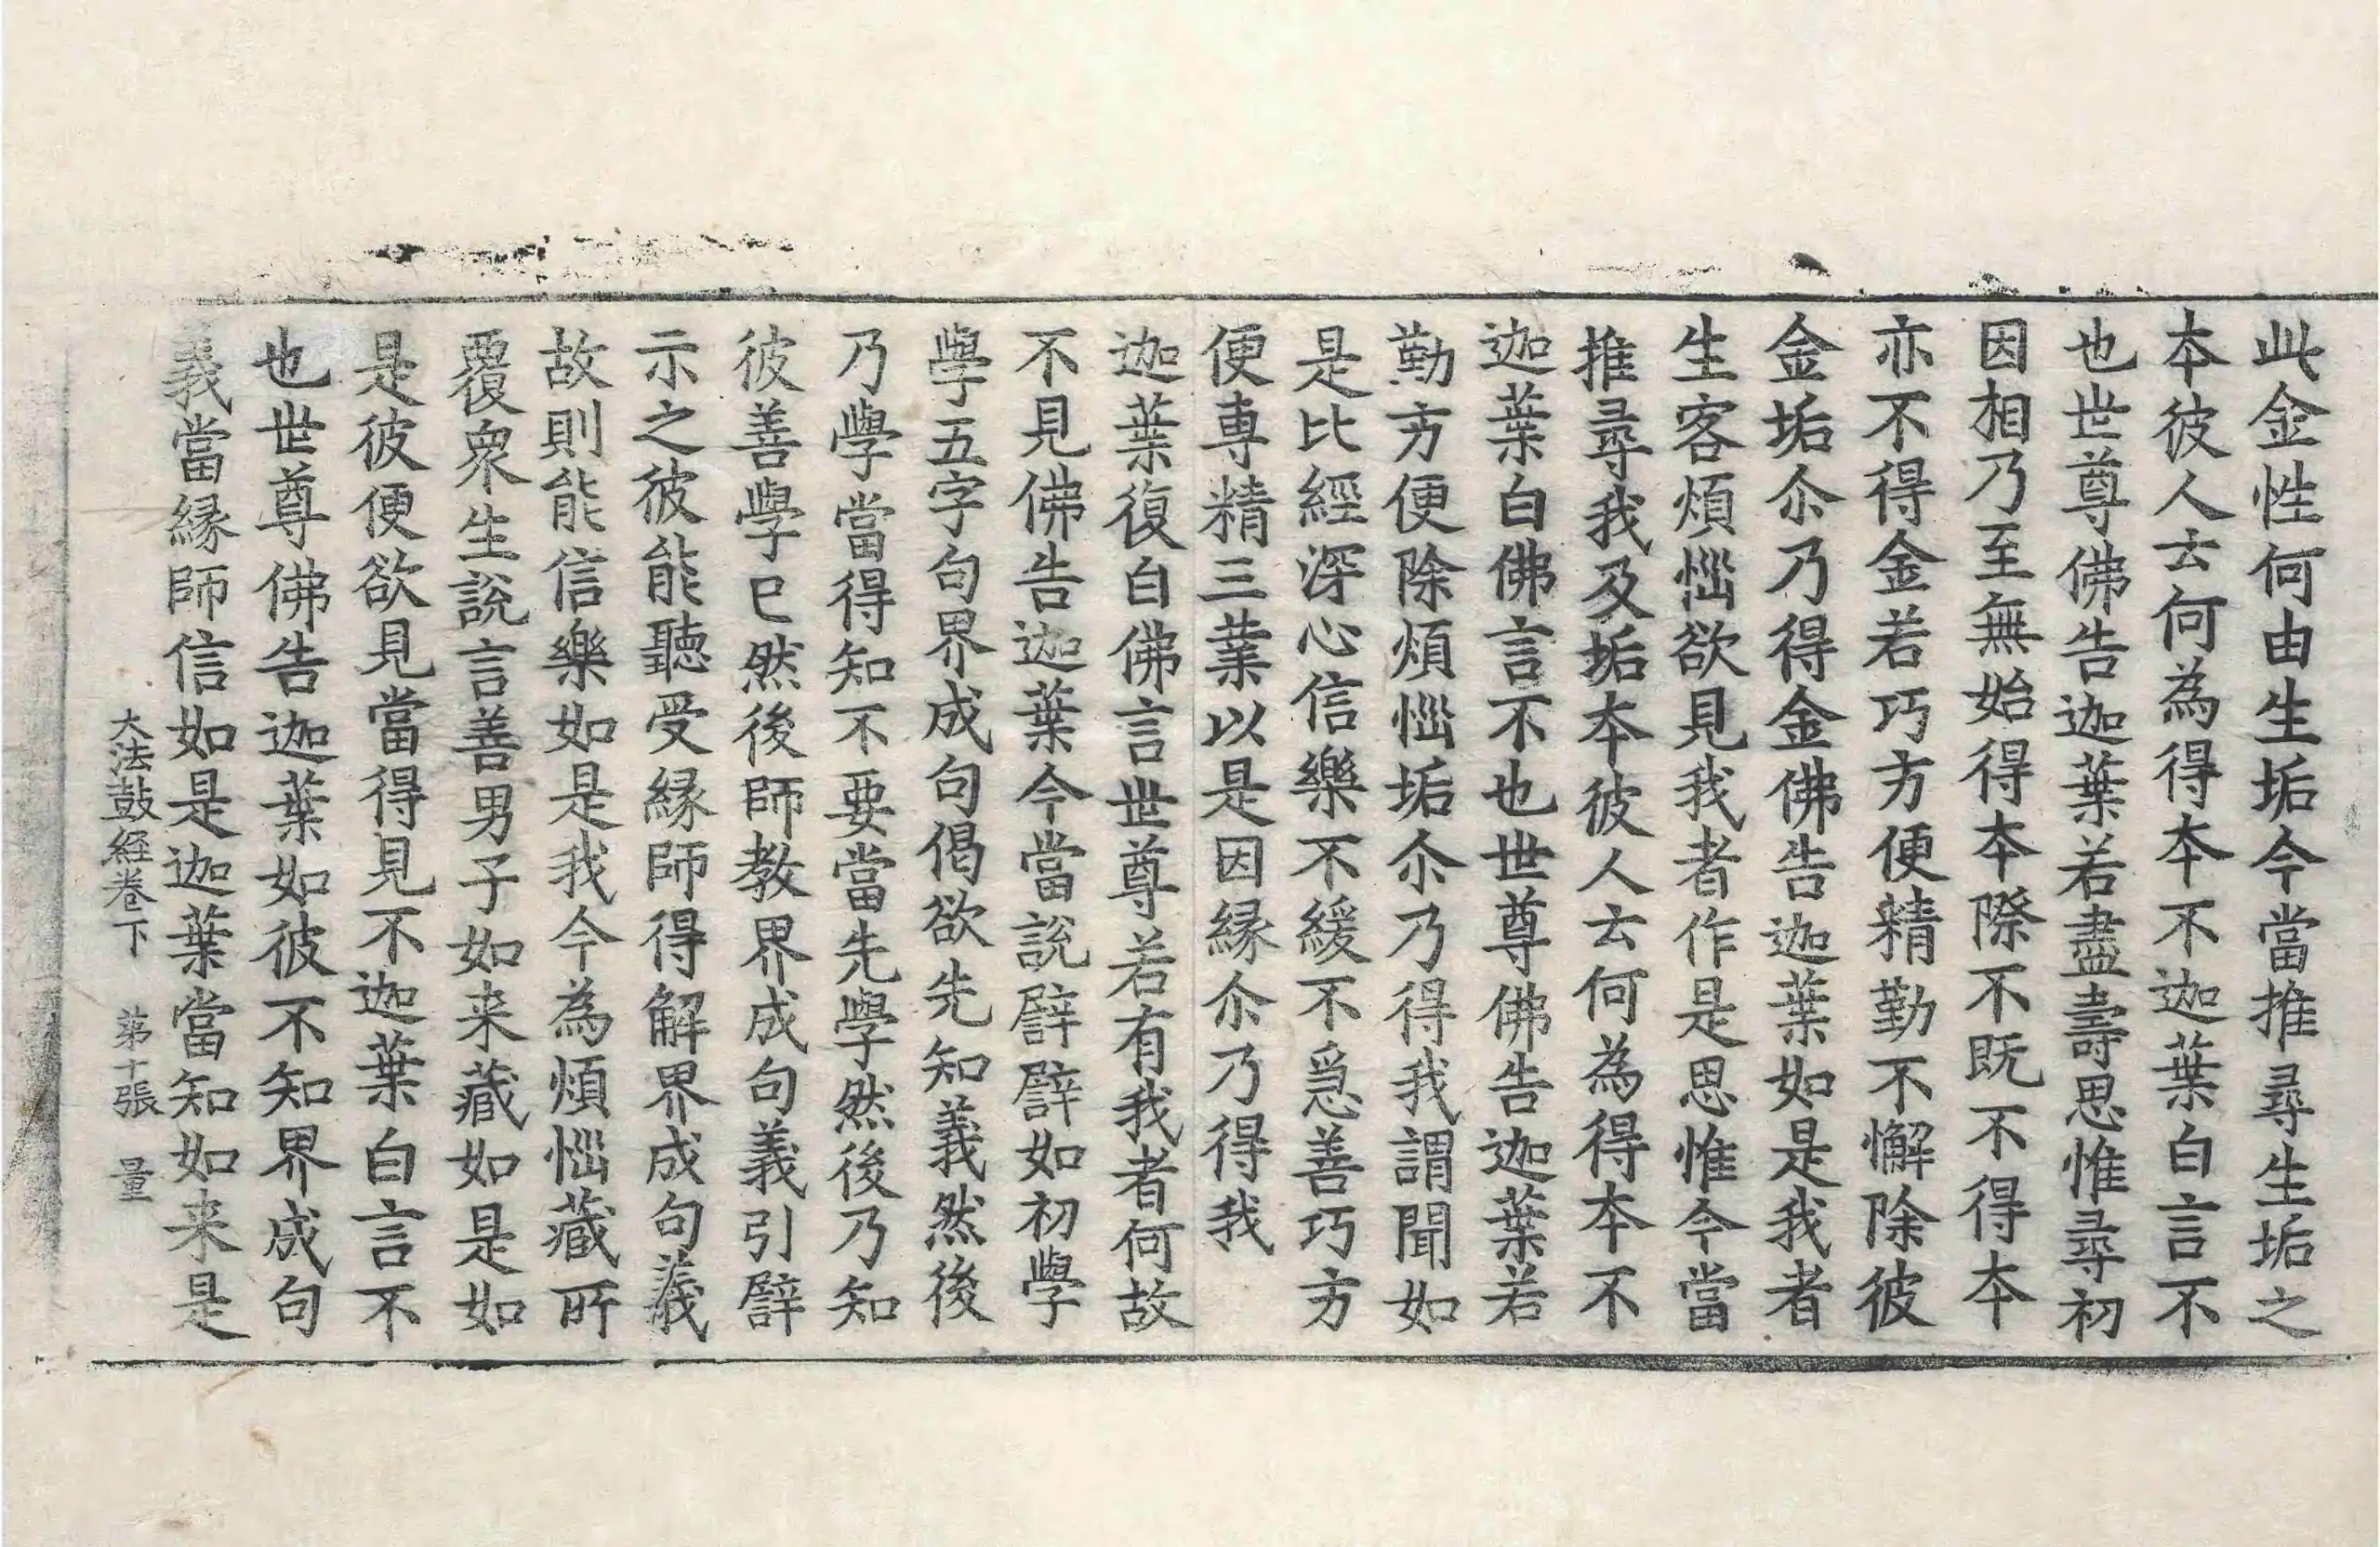 此金性何由生垢今當推尋生垢之
本彼人云何為得本不迦葉白言不
也世尊佛告迦葉若盡壽思惟尋初
因相乃至無始得本際不既不得本
亦不得金若巧方便精勤不懈除彼
金垢尒乃得金佛告迦葉如是我者
生客煩惱欲見我者作是思惟今當
推尋我及垢本彼人云何為得本不
迦葉白佛言不也世尊佛告迦葉若
勤方便除煩惱垢尒乃得我謂聞如
是比經深心信樂不緩不急善巧方
便專精三業以是因緣尒乃得我
迦葉復白佛言世尊若有我者何故
不見佛告迦葉今當說譬譬如初學
學五字句界成句偈欲先知義然後
乃學當得知不要當先學然後乃知
彼善學已然後師教界成句義引譬
示之彼能聽受緣師得解界成句義
故則能信樂如是我今為煩惱藏所
覆衆生說言善男子如来藏如是如
是彼便欲見當得見不迦葉白言不
也世尊佛告迦葉如彼不知界成句
義當緣師信如是迦葉當知如来是
大法鼓經卷下 苐十張 量